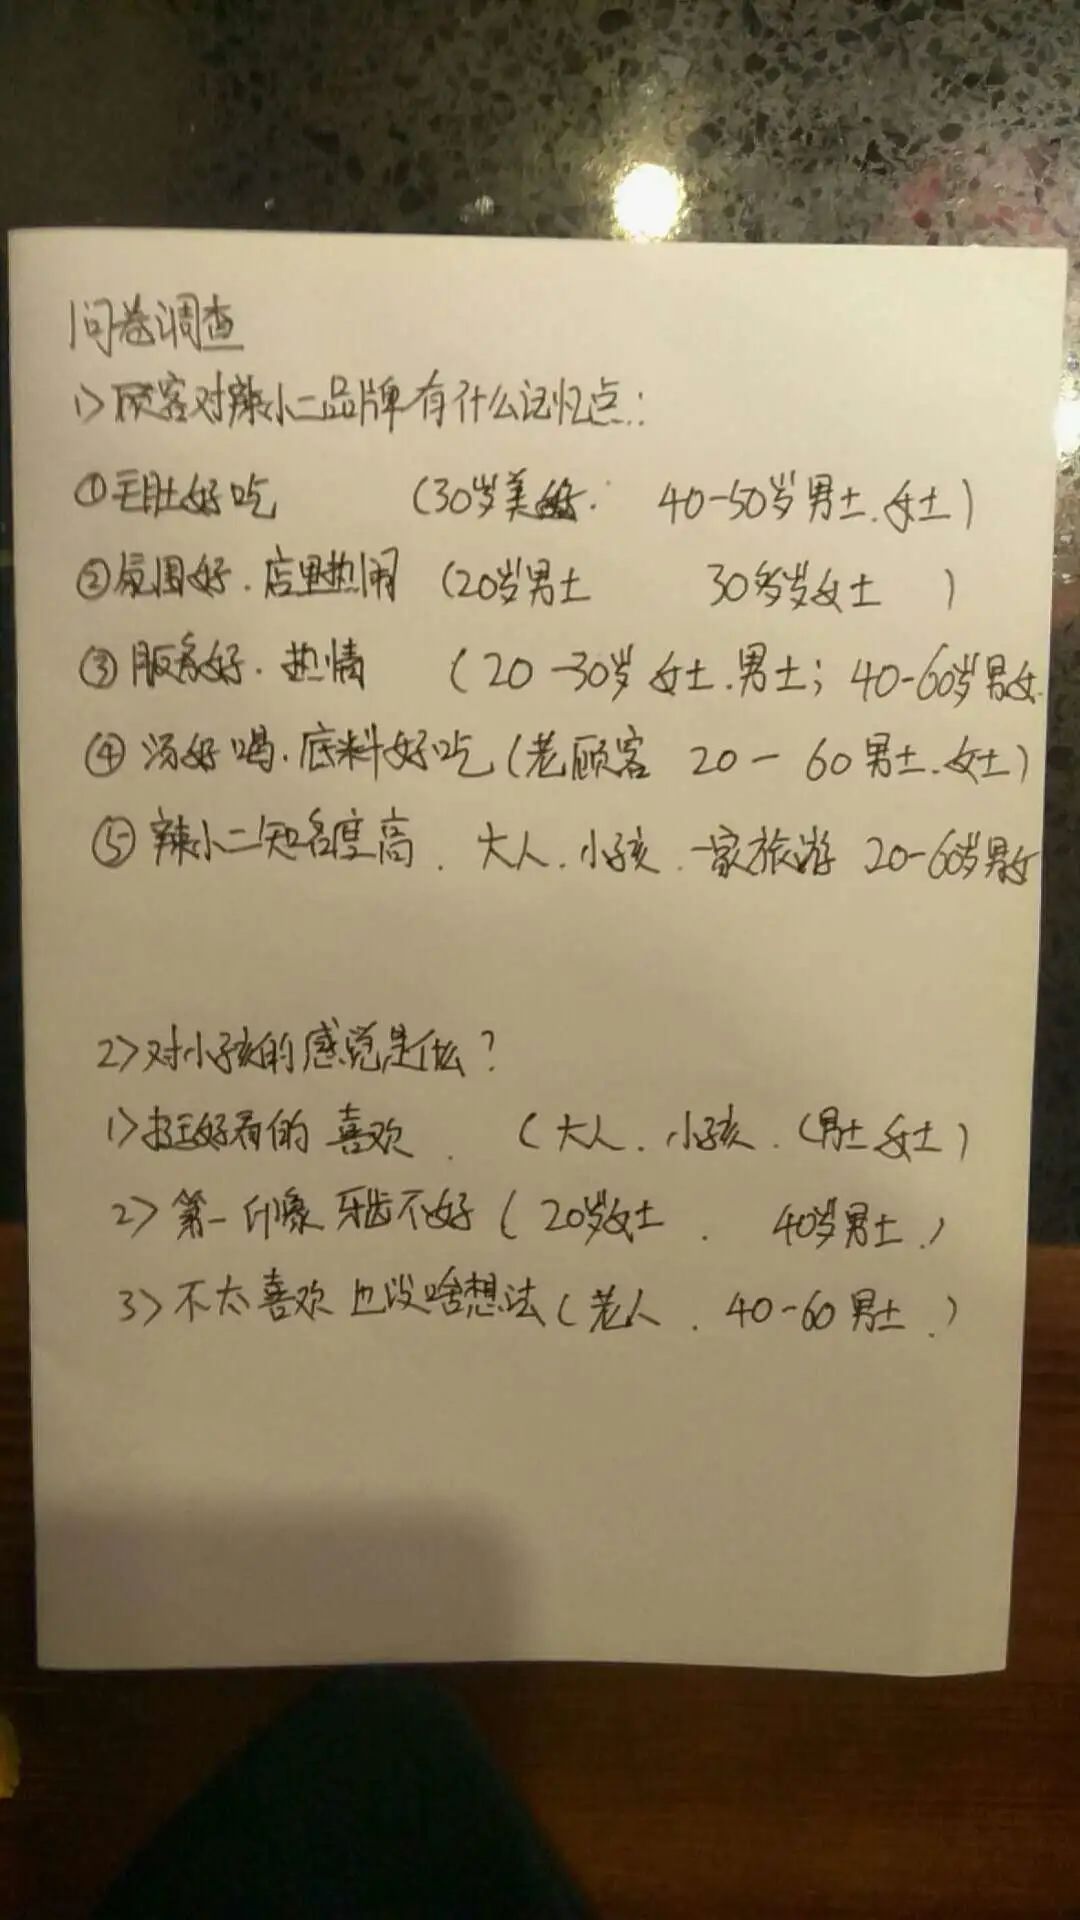 问卷调查
1>顾客对辣小二品牌有什么记忆点:
①毛肚好吃 (30岁美 40-50岁男士.女士)
②氛围好.店里热闹 (20岁男士 30多岁女士 )
③服务好.热情 (20-30岁女士.男士; 40-60岁男女
④汤好喝.底料好吃(老顾客 20-60男士.女士)
⑤辣小二知名度高.大人.小孩.一家旅游 20-60岁男女
2>对小孩的感觉是什么?
1>挺好看的 喜欢. (大人.小孩.(男士女士)
2>第一印象牙齿不好(20岁女士. 40岁男士.)
3>不太喜欢也没啥想法(老人.40-60男士.)